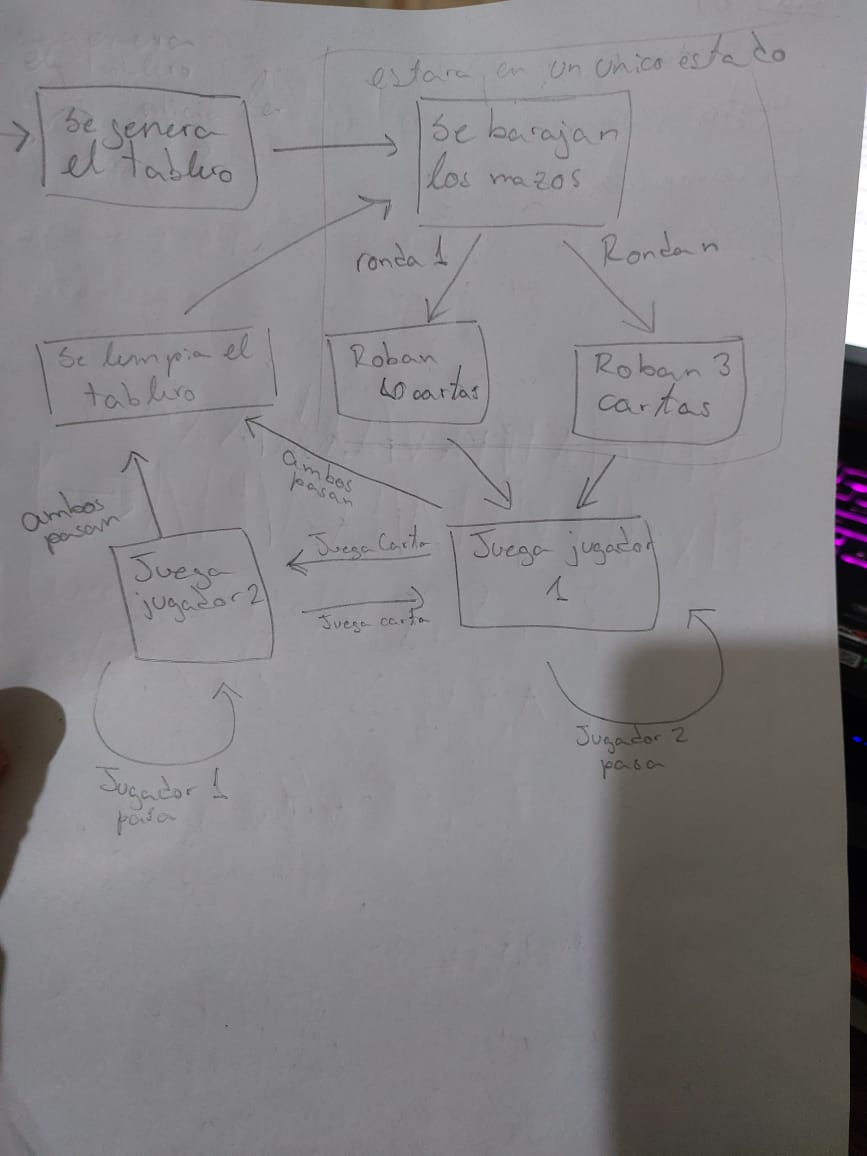 estara en un unico estado
Se genera
el tablero
Se barajan
los mazos
ronda 1
Ronda n
Se limpia el
tablero
Roban
10 cartas
Roban 3
cartas
ambos
pasan
ambos
pasan
Juega
jugador 2
Juega Carta
Juega carta
Juega jugador
1
Jugador 1
pasa
Jugador 2
pasa